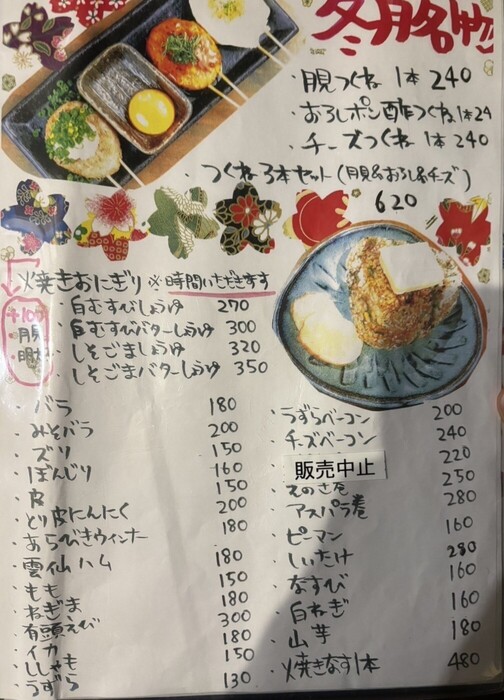 冬月名物
・月見つくね 1本 240
・おろしポン酢つくね 1本 24
・チーズつくね 1本 240
・つくね3本セット(月見&おろし&チーズ)
620
焼きおにぎり ※時間いただきます
・白むすびしょうゆ 270
・白むすびバターしょうゆ 300
・しそごましょうゆ 320
・しそごまバターしょうゆ 350
・月見
・明太
・バラ 180
・みそバラ 200
・ズリ 150
・ぼんじり 160
・皮 150
・とり皮にんにく 200
・あらびきウィンナー 180
・雲仙ハム 180
・もも 150
・ねぎま 180
・有頭えび 300
・イカ 180
・ししゃも 150
・うずら 130
・うずらベーコン 200
・チーズベーコン 240
販売中止 220
・えのき巻 250
・アスパラ巻 280
・ピーマン 160
・しいたけ 280
・なすび 160
・白ねぎ 160
・山芋 180
・焼きなす1本 480